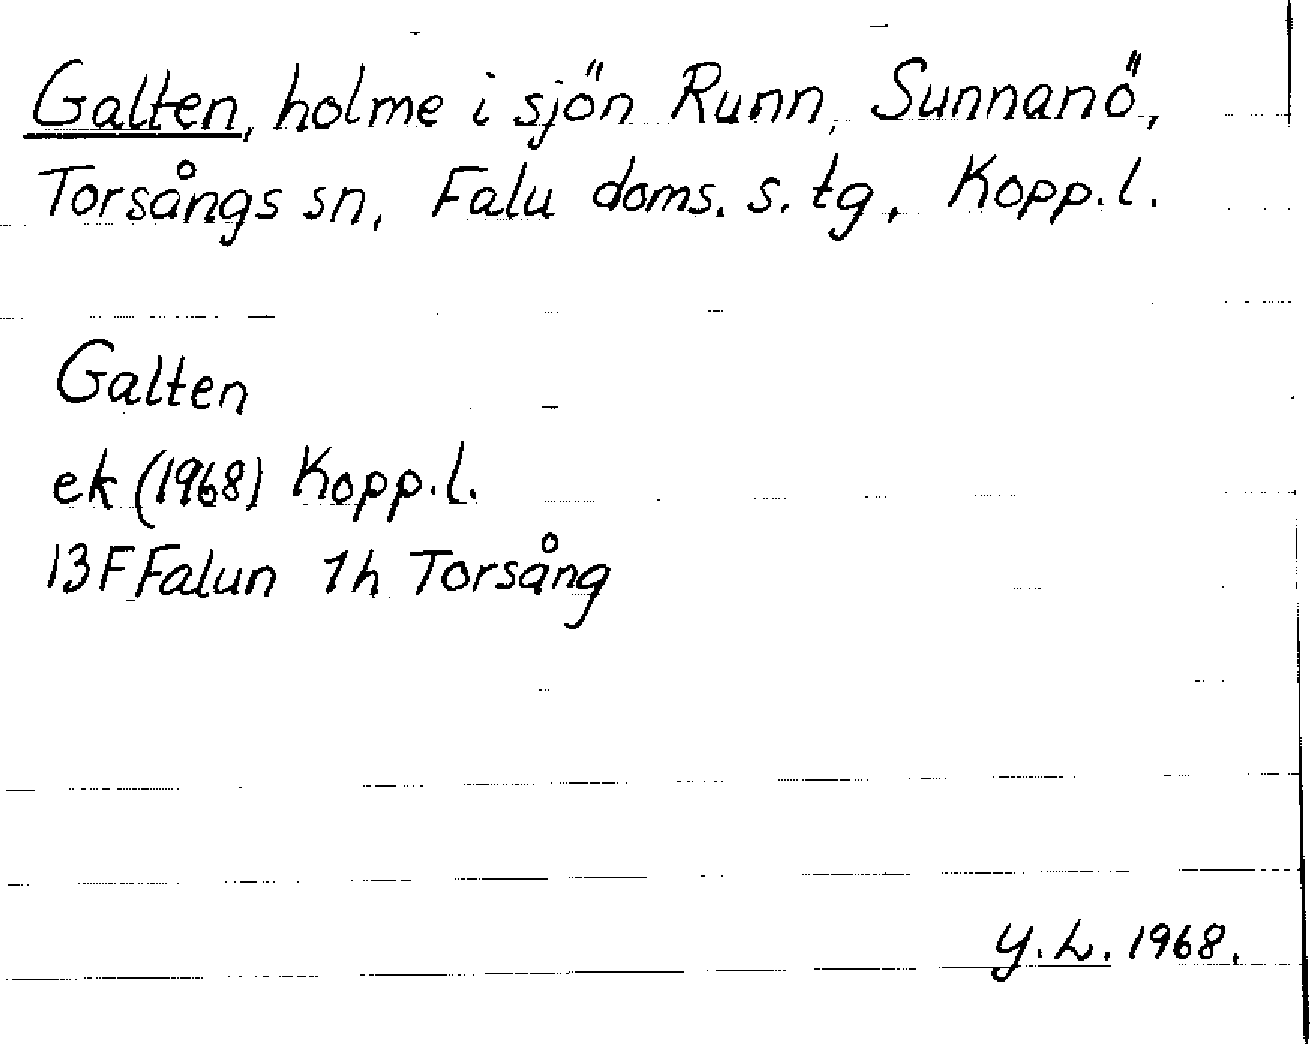 Galten, holme i sjön Runn, Sunnanö,
Torsångs sn, Falu doms. s. tg, Kopp.l.
Galten
ek (1968) Kopp.l.
13F Falun 1h Torsång
Y.L. 1968.